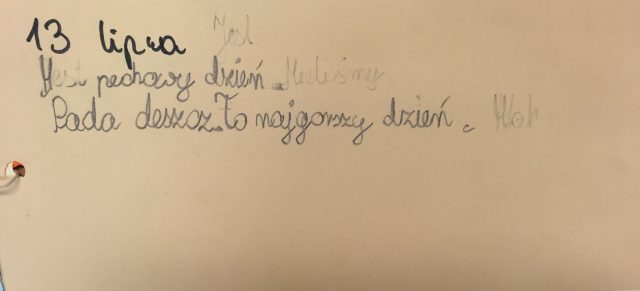 13 lipca Jest
Jest pechowy dzień. Mieliśmy
Pada deszcz. To najgorszy dzień.